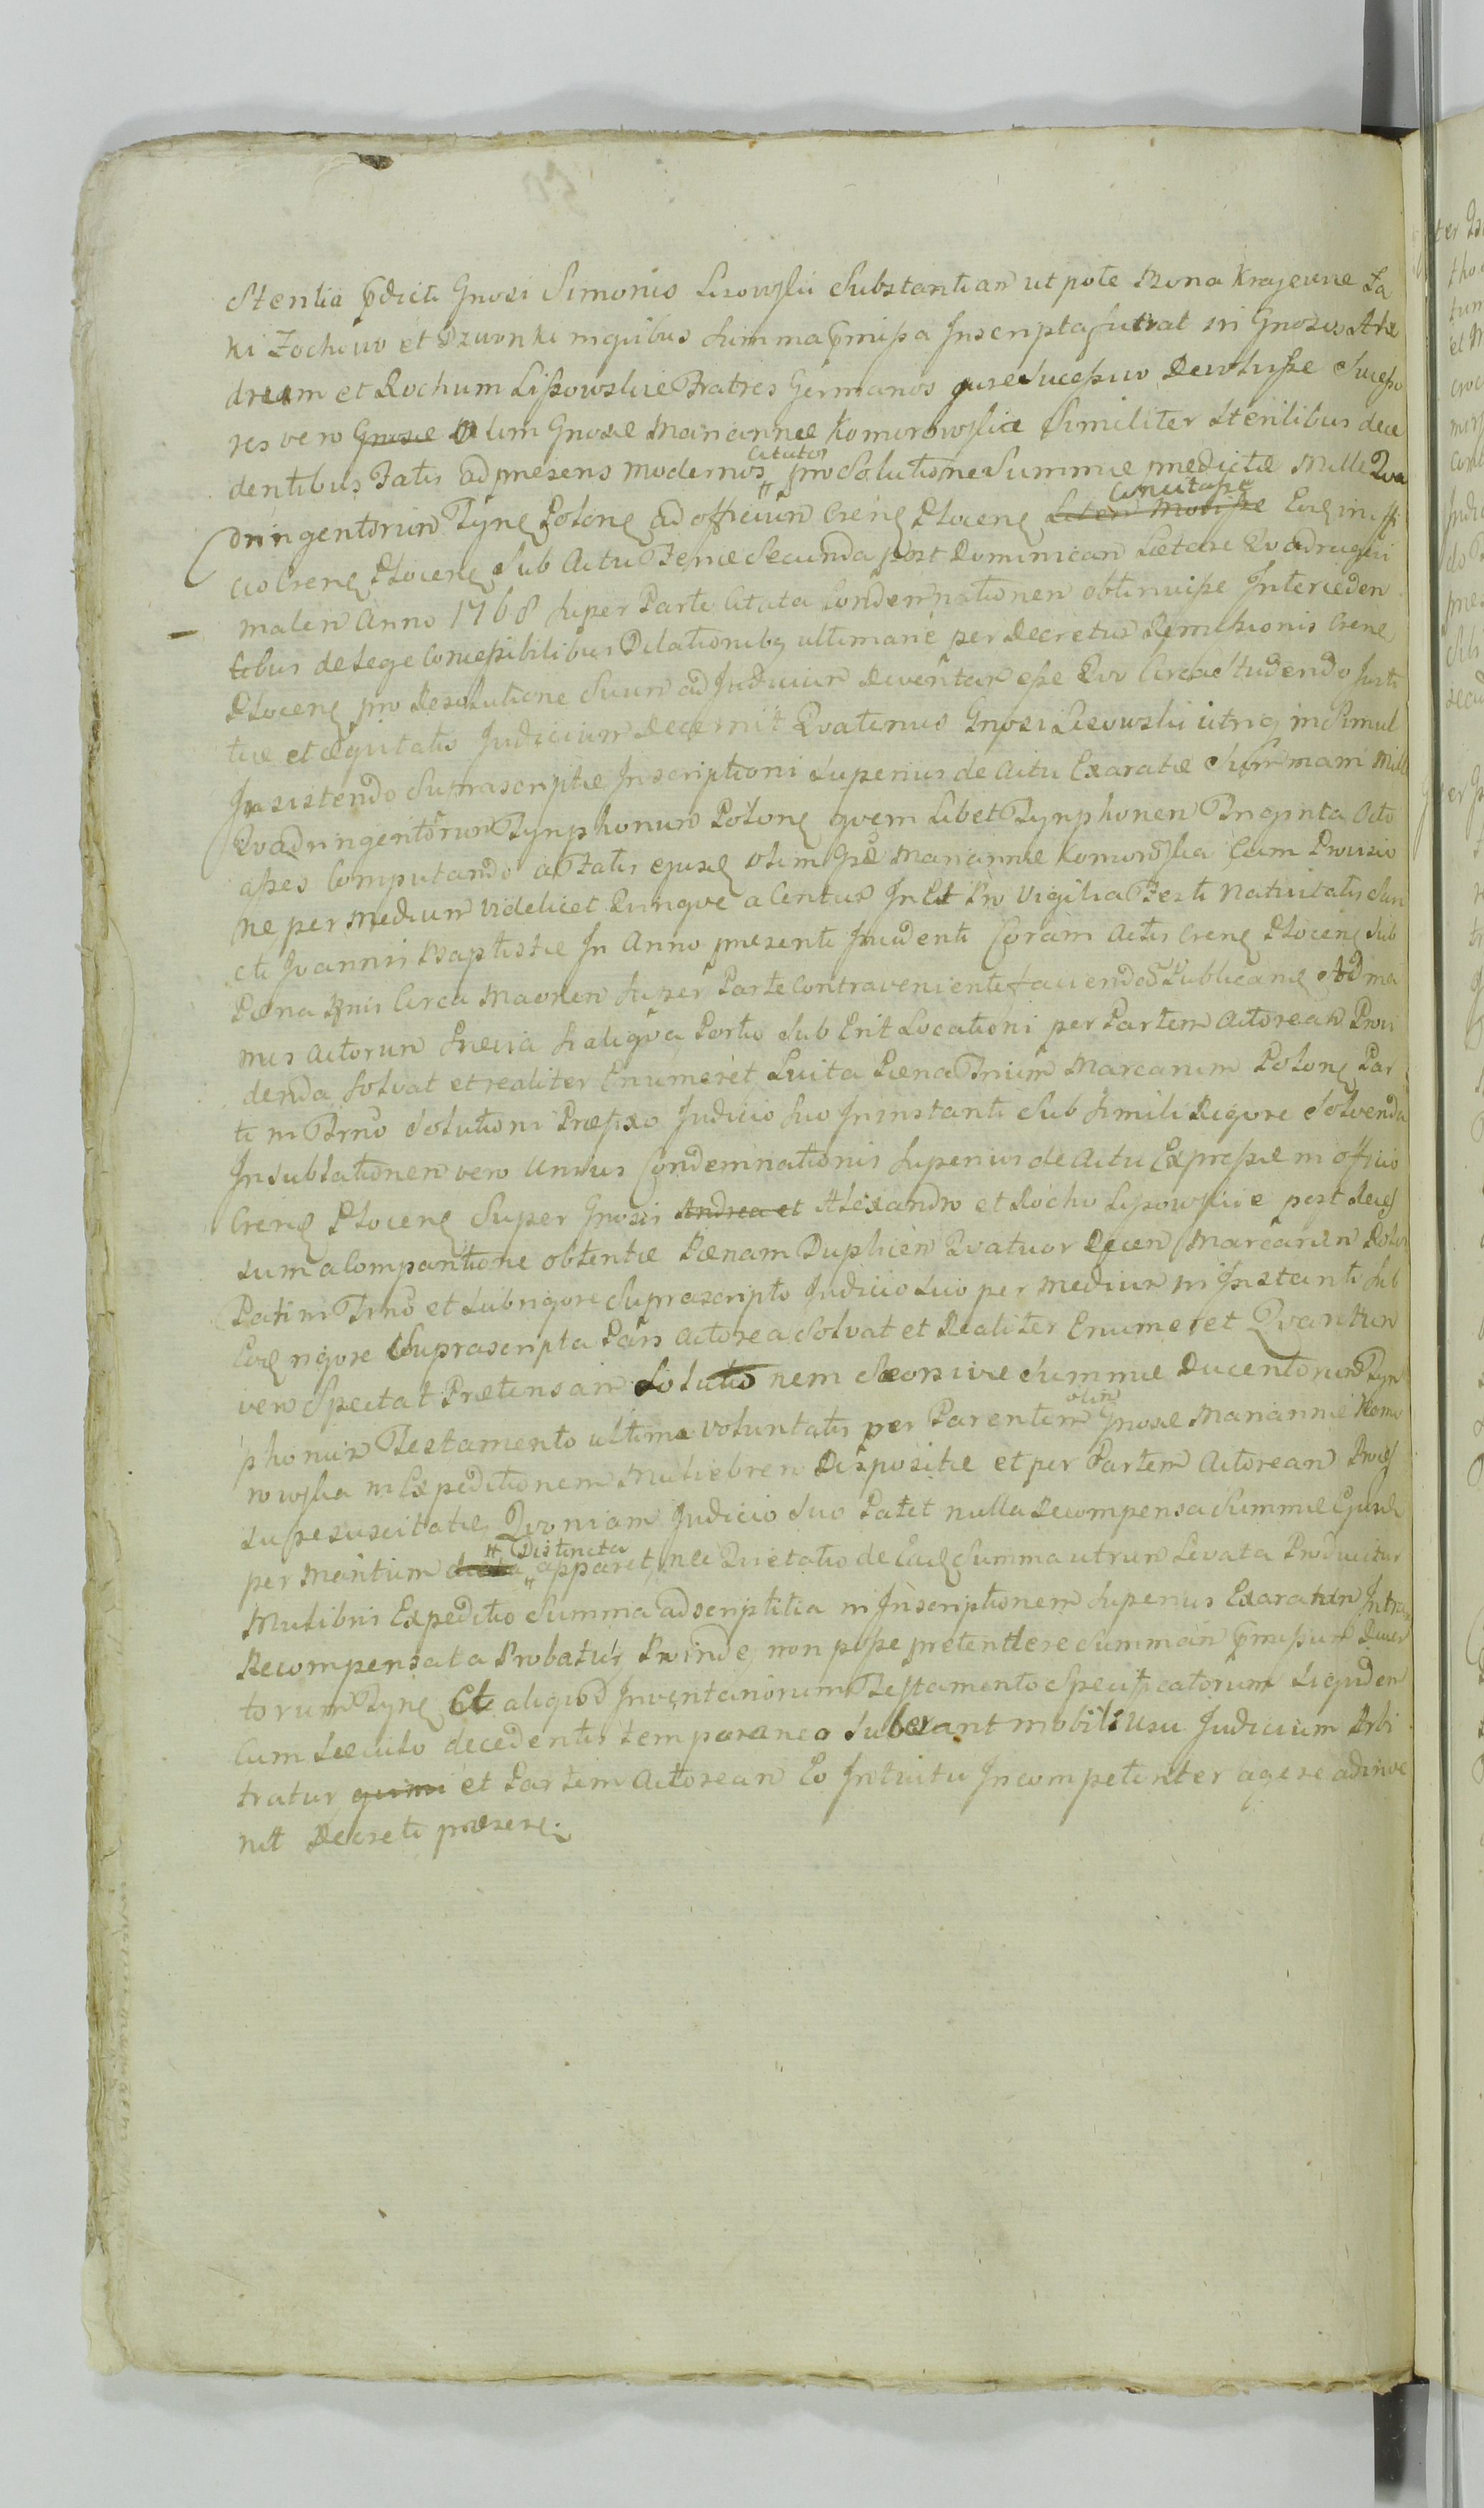 Sterilia pdicti Gnosi Simonis Lisowskii Substantiam ut pote Bona Krajewice La
ki Zochowo et Dzwonki in quibus Summa pmissa Inscripta fuerat in Gnosos Ale
dream et Rochum Lissowskie Fratres Germanos jure sucessivo Devoluisse Sucesso
res vero Gnosae Olim Gnosae Mariannae Komorowska Similiter Sterilibus dece
dentibus Fatis ad presens modernos citatos pro Solutione Summae predictae Mille Qva
dringentorum Tyne Polone ad officium Crene Plocene Literi Movisse Concitasse Eoe in offi
cio Crene Plocene Sub Actu Feriae Secunda post Dominicam Laetare Qvadragesi
malem Anno 1768 super Parte Citata Condemnationem obtinuisse Interceden
tibus de Lege Concessibilibus Dilationibq ultimarie per Decretum Remissionis Crene
Plocene pro Resolutione Suum ad Judicium Deventum esse Qvo Circa Studendo Justi
tiae et aequitatis Judicium decernit Qvatenus Gnosi Lisowskii utriq insimul
Insistendo Suprascriptae Inscriptioni superius de Actu Exaratae Summam Mille
Qvadringentorum Tynphonum Polone qvemlibet Tynphonem Triginta Octo
asses Computando a Fatis ejusde olim Gae Mariannae Komorowska Cum Provisio
ne per Medium videlicet Qvinqve a Centum In Et Pro Vigilia Festi Nativitatis San
cti Joannis Baptistae In Anno presenti Incidenti Coram Actis Crene Plocene Sub
Paena Bnis Circa Maonem super Parte Contraveniente faciendo Publicane Ad ma
nus Actorum si aliqva Portio sub Erit Locationi per Partem Actoream Provi
denda solvat et realiter Enumeret Luita Paena Trium Marcarum Polone Par
ti in Trno Solutioni Praefixo Judicio suo In instanti Sub Simili Rigore Solvenda
In sublationem vero Unius Condemnationis Superius de Actu Expressae in officio
Crene Plocene Super Gnosis Andrea et Alexandro et Rocho Lisowskie post Reces
sum a Comparitione obtentae Paenam Duplicem Qvatuor Decem Marcarum Polon
Parti in Trno et sub rigore Suprascripto Judicio suo per medium in Instanti sub
Eode rigore Suprascripta Pars Actorea Solvat et Realiter Enumeret Qvantum
vero Spectat Praetensam Solutionem Seorsivae Summae Ducentorum Tyn
phonum Testamento ultima voluntatis per Parentem olim Gnosae Mariannae Komo
rowska in Expeditionem Muliebrem Dispositae et per Partem Actoream Proces
su resuscitatae Qvoniam Judicio suo Patet nulla Recompensa Summae Ejusde
per Maritum Distincta apparet, nec Qvietatio de Eade Summa utrum Levata Producitur
Mulibris Expeditio Summa adscriptitia in Inscriptionem superius Exaratam Intra
Recompensata Probatur Proinde non posse pretendere Summam pmissam Ducen
torum Tyne Et aliqvod Inventariorum Testamento Specificatorum Siqvidem
Cum Saeculo decedentis temporaneo suberant mobilis usu Judicium Arbi
tratur et Partem Actoream Eo Intuitu Incompetenter agere adinve
nit Decreti praesene.